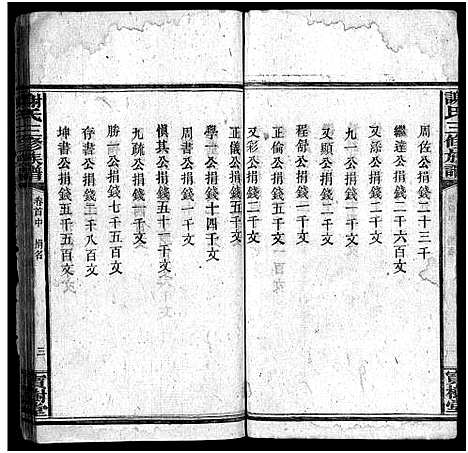 謝氏三修族譜
周佐公捐錢二十三千
繼達公捐錢二千六百文
又添公捐錢二千文
九一公捐錢二千文
又顯公捐錢二千文
程舒公捐錢一千文
正倫公捐錢一千一百文
又彩公捐錢三千文
正儀公捐錢五千文
學一公捐錢十四千文
周書公捐錢一千文
慎其公捐錢五十一千文
九疏公捐錢一千文
勝一公捐錢七千五百文
存書公捐錢二千八百文
坤書公捐錢五千五百文
謝氏三修族譜
卷首中
捐名
三
寶樹堂